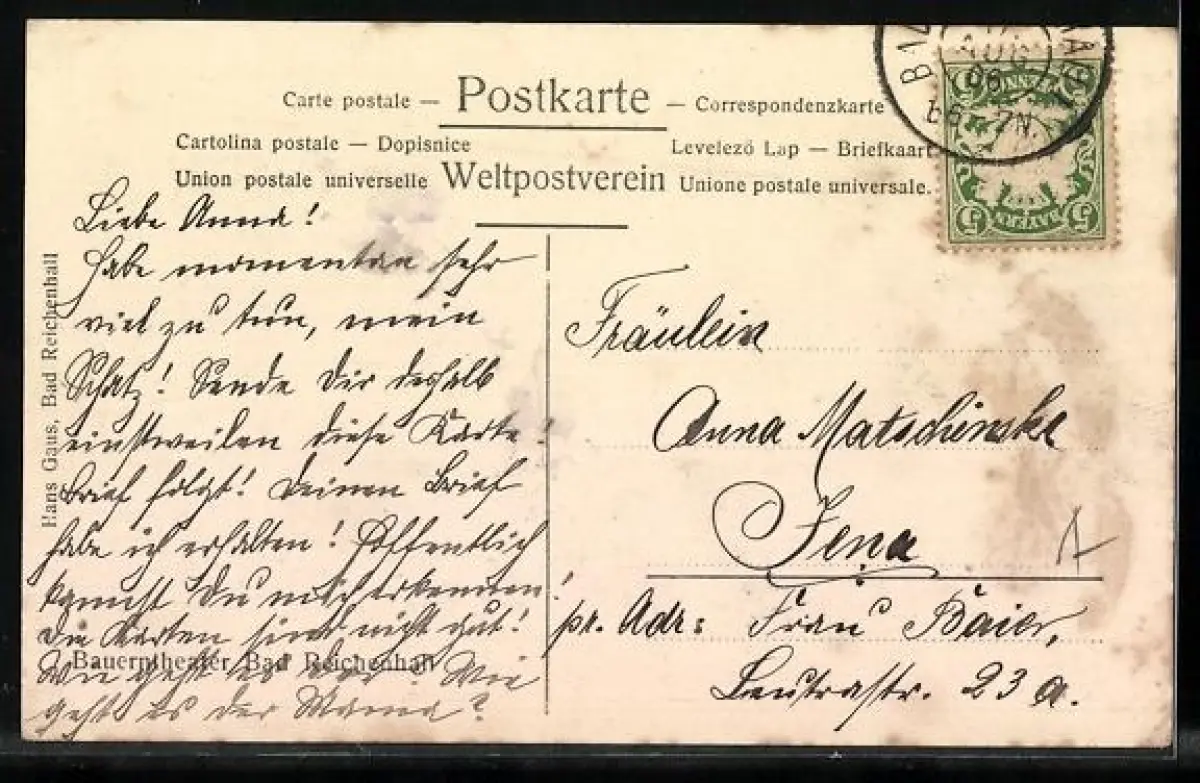 Carte postale — Postkarte — Correspondenzkarte
Cartolina postale — Dopisnice Levelező Lap — Briefkaart
Union postale universelle Weltpostverein Unione postale universale.
AUG
06
7N.
BAYERN
5 5
Hans Gaus, Bad Reichenhall
Liebe Anna!
Habe momentan sehr
viel zu tun, mein
Schatz! Sende Dir deshalb
einstweilen diese Karte!
Brief folgt! Deinen Brief
habe ich erhalten! Hoffentlich
kannst Du mich erkennen!
Die Karten sind nicht gut!
Wie geht es Dir? Wie
geht es der Mama?
Bauerntheater Bad Reichenhall
Fräulein
Anna Matschinske
Jena
pr. Adr: Frau Baier,
Leutrastr. 23 a.